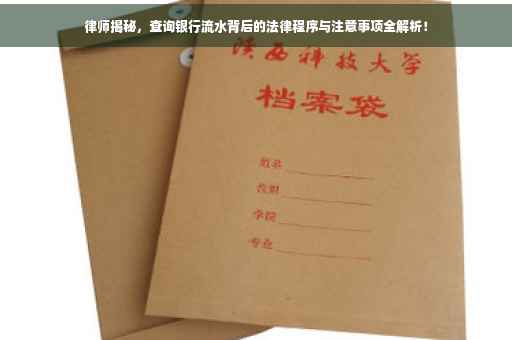 律师揭秘，查询银行流水背后的法律程序与注意事项全解析！
陕西科技大学
档案袋
姓名
学院
专业